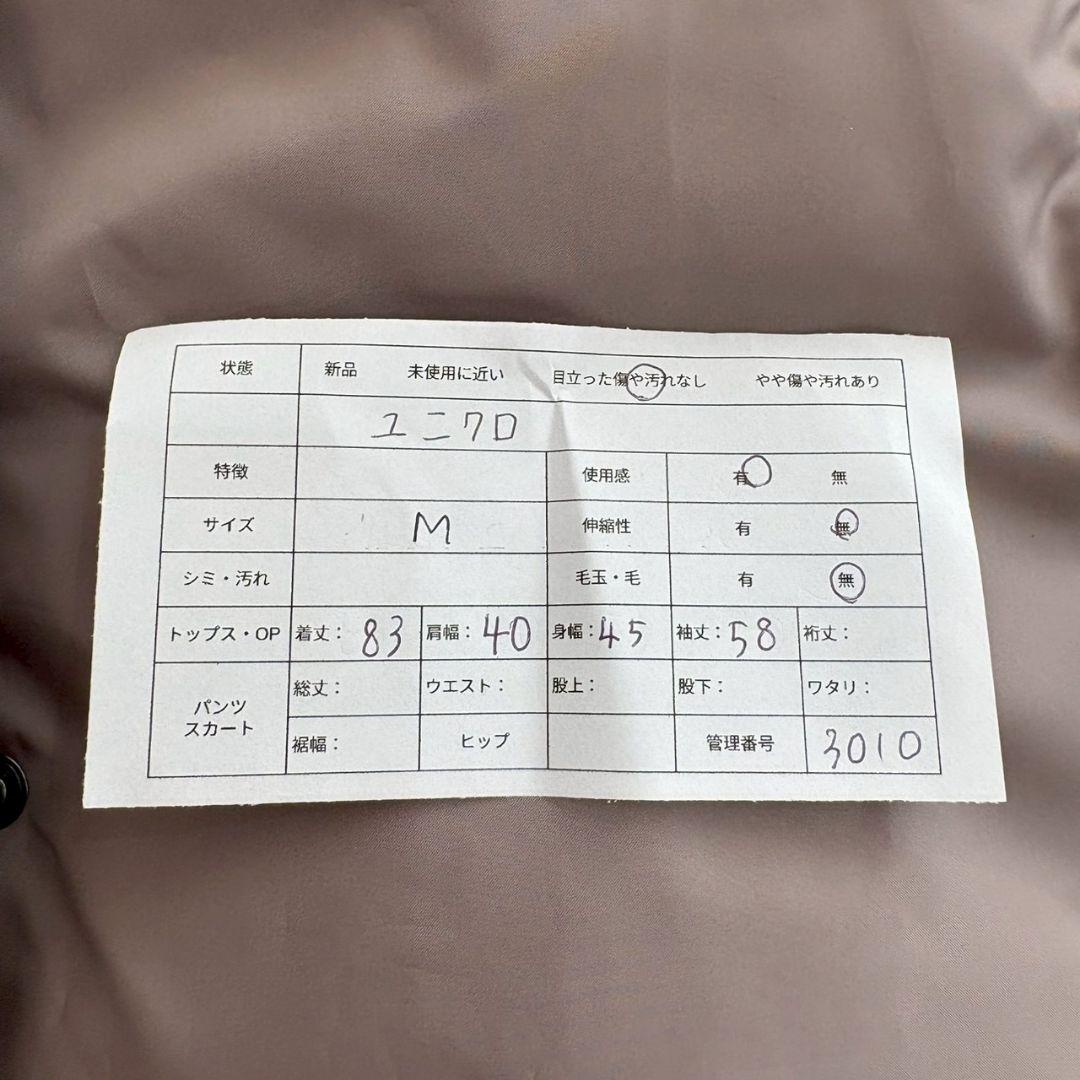 状態 新品 未使用に近い 目立った傷や汚れなし やや傷や汚れあり
ユニクロ
特徴 使用感 有 無
サイズ M 伸縮性 有 無
シミ・汚れ 毛玉・毛 有 無
トップス・OP 着丈：83 肩幅：40 身幅：45 袖丈：58 裄丈：
パンツ
スカート
総丈： ウエスト： 股上： 股下： ワタリ：
裾幅： ヒップ 管理番号 3010